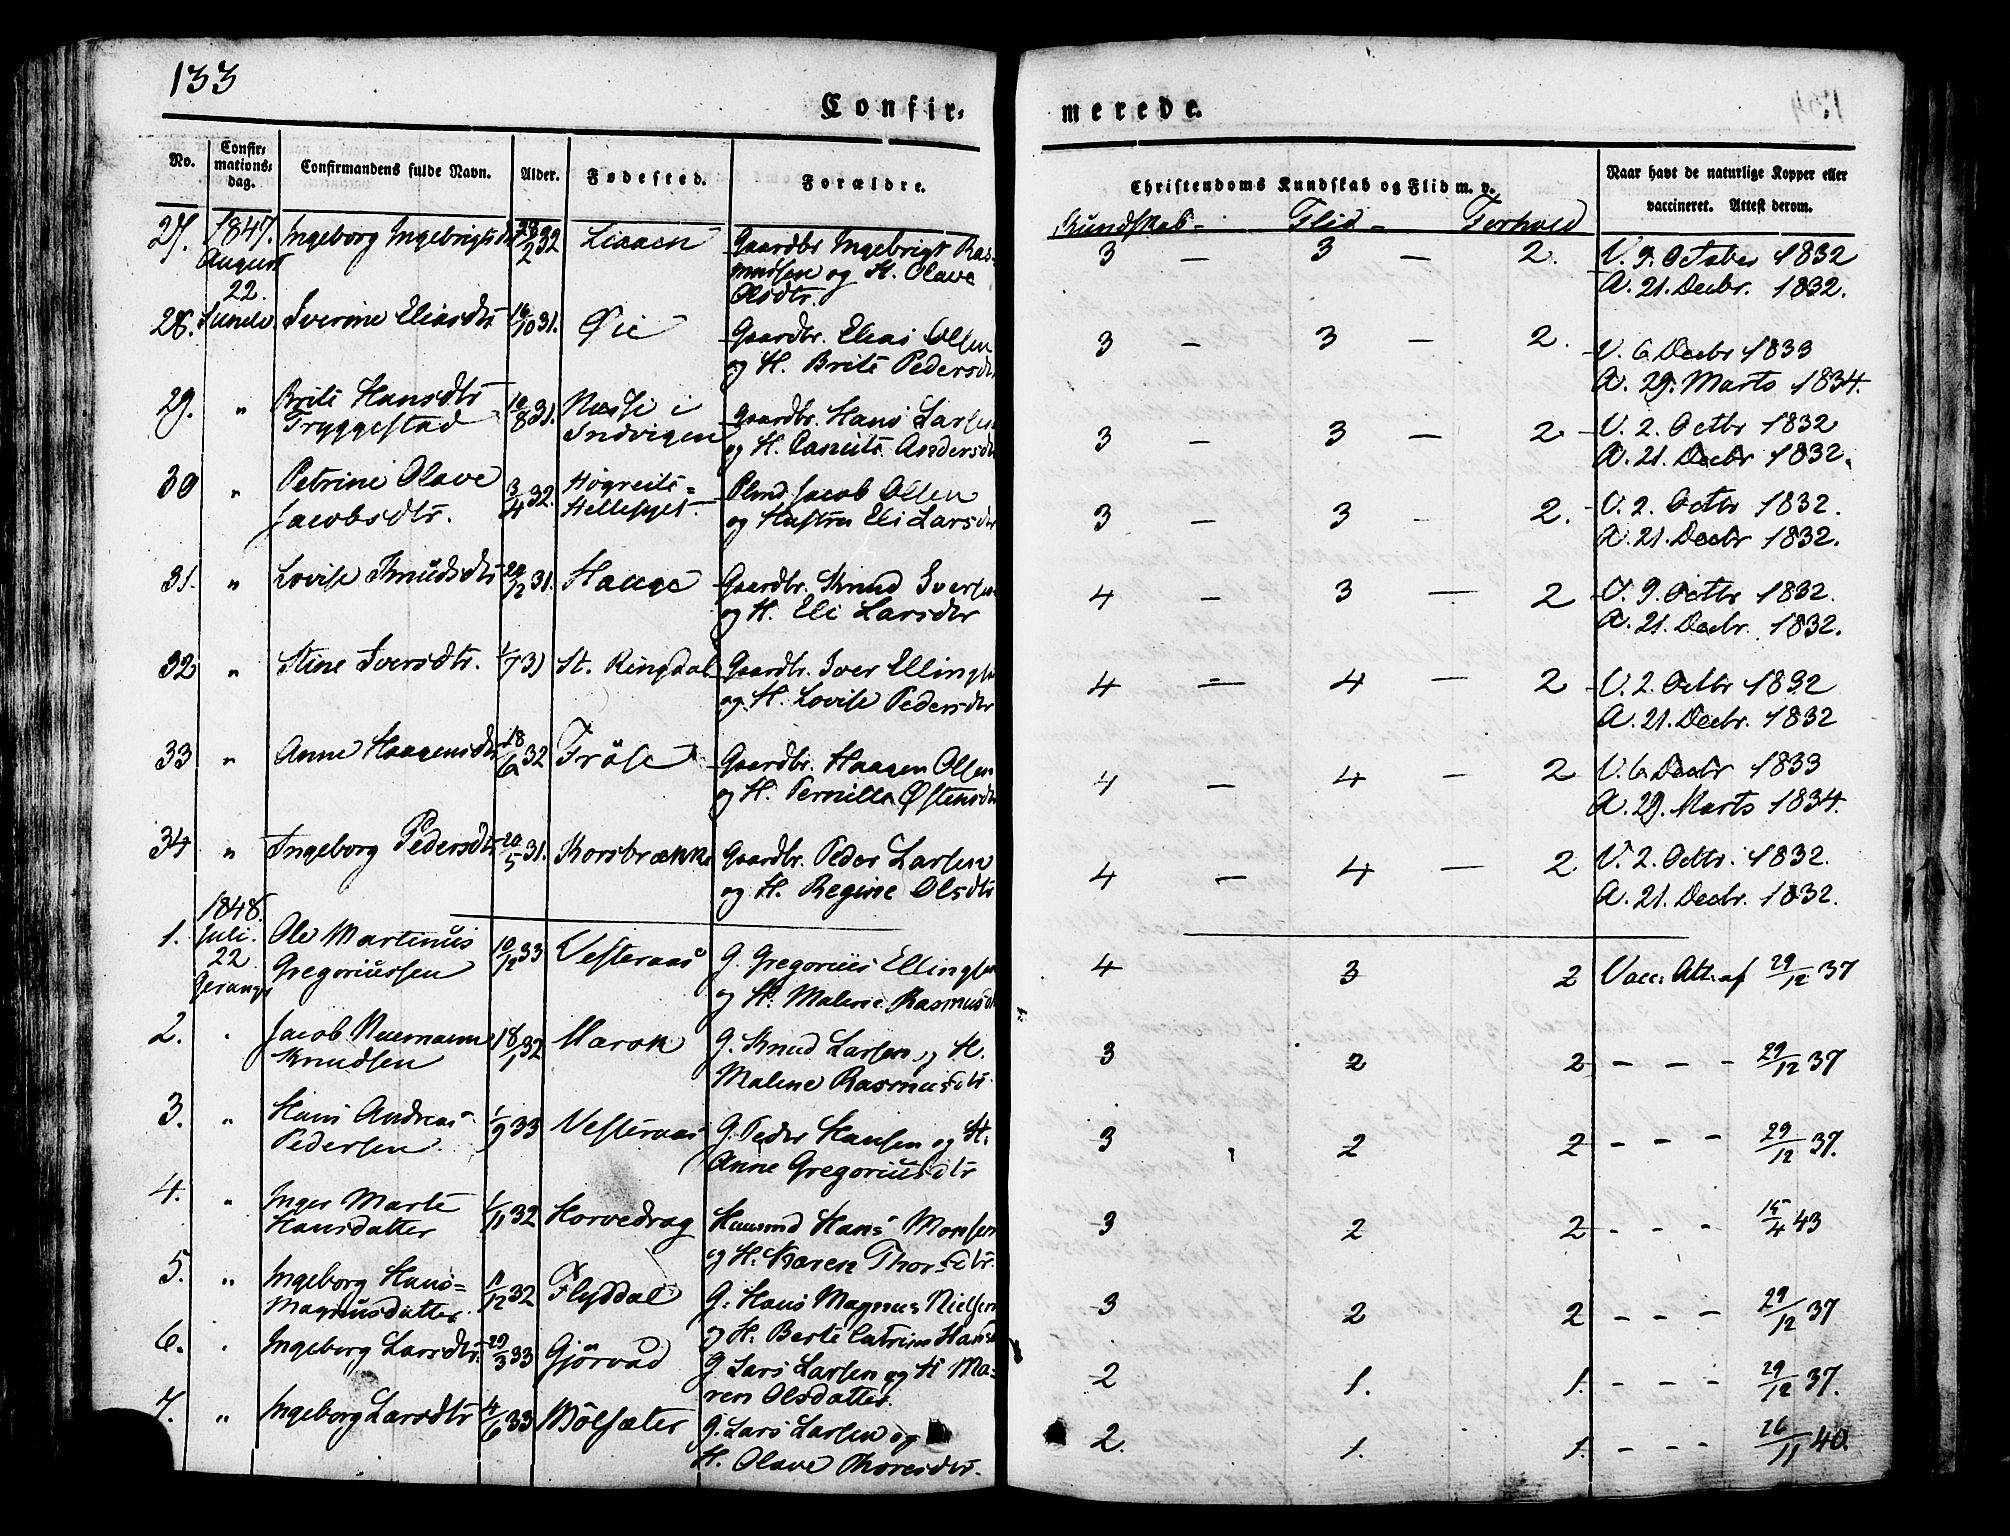 133
Confir- merede.
No. Confir- mations- dag. Confirmandens fulde Navn. Alder. Fødested. Forældre. Christendoms Kundskab og Flid m. v. Naar havt de naturlige Kopper eller vaccineret. Attest derom.
Kundskab - Flid - Forhold
27. 1847. Ingeborg Ingebrigtsdtr 28/2 32 Liaaen Gaardbr Ingebrigt Ras- 3 — 3 — 2. V. 9. October 1832
August mussen og H. Olave A. 21. Decbr. 1832.
22. Olsdtr.
28. Sunelv Iverine Eliasdtr 16/10 31. Øie Gaardbr. Elias Olsen 3 — 3 — 2. V. 6 Decbr 1833
og H. Brite Pedersdtr A. 29. Marts 1834.
29. " Brite Hansdtr 10/8 31. i Gaardbr. Hans Larsen 3 — 3 — 2 V. 2. Octbr 1832
Tryggestad Indvigen og H. Andersdtr A. 21. Decbr 1832.
30 " Petrine Olave 3/4 32. Høgreits= Plmd Jacob Olsen 3 — 3 — 2. V. 2. Octbr 1832.
Jacobsdtr. og Hustru Eli Larsdtr A. 21. Decbr 1832.
31. " Lovise Knudsdtr /12 31. Hauge Gaardbr. Knud Iversen 4 — 3 — 2 V. 9. Octbr 1832.
og H. Eli Larsdtr A. 21. Decbr. 1832.
32 " Stine Iversdtr. /7 31 St. Ringdal Gaardbr. Iver Ellingsen 4 — 4 — 2 V. 2. Octbr 1832
og H. Lovise Pedersdtr A. 21. Decbr. 1832
33 " Anne Haagensdtr 18/6 32 Frøse Gaardbr. Haagen Olsen 4 — 4 — 2 V. 6 Decbr 1833
og H. Pernille Østensdtr A. 29. Marts 1834.
34 " Ingeborg Pedersdtr 20/5 31. Korsbrække Gaardbr. Peder Larsen 4 — 4 — 2 V. 2. Octbr. 1832.
og H. Regine Olsdtr A. 21. Decbr. 1832.
1848.
1. Juli. Ole Martinus 10/12 33 Vesteraas G. Gregorius Ellingsen 4 3 2 Vacc. Att. af 29/12 37
22 Gregoriussen og H. Malene Rasmusdtr
Geranger
2. " Jacob Neumann 18/1 32 Marok G. Knud Larsen og H. 3 2 2 — — — 29/12 37
Knudsen Malene Rasmusdtr
3. " Hans Andreas 1/9 33 Vesteraas G. Peder Hansen og H. 3 2 2 — — — 29/12 37.
Pedersen. Anne Gregoriusdtr
4. " Inger Marte 1/11 32 Horvedrag Huusmd Hans Monsen 3 2 2 — — — 15/4 43
Hansdatter og H. Karen Thorsdtr.
5. " Ingeborg Hans= /12 32 Flyddal G. Hans Magnus Nielsen 3 2 2 — — — 29/12 37
Magnusdatter. og H. Berte Catrine Hansd
6. " Ingeborg Larsdtr. 29/3 33 Gjørvad G. Lars Larsen og H Ma- 2 1. 1. — — — 29/12 37.
ren Olsdatter.
7. " Ingeborg Larsdtr 4/6 33 Møllsæter G. Lars Larsen og 2. 1. 1. — — — 26/11 40.
H. Olave Thoresdtr.